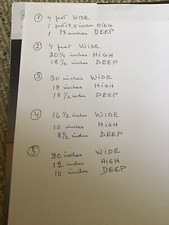 ① 4 feet WIDE
1 foot 7.5 inches HIGH
1 93 inches DEEP
② 4 feet WIDE
20½ inches HIGH
18½ inches DEEP
③ 30 inches WIDE
18 inches HIGH
18½ inches DEEP
④ 16½ inches WIDE
10 inches HIGH
8½ inches DEEP
⑤ 20 inches WIDE
12 inches HIGH
10 inches DEEP